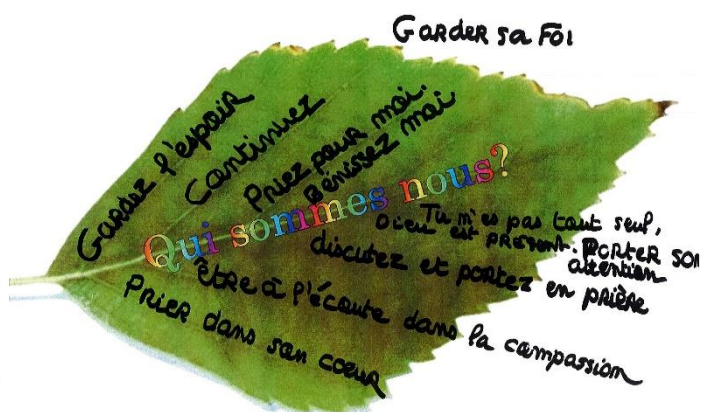 Garder sa Foi
Gardez l'espoir
Continuez
Priez pour moi.
Bénissez moi
Qui sommes nous?
Tu m'es pas tout seul,
Dieu est présent.
PORTER SON
attention
discutez et portez en prière
être à l'écoute dans la compassion
Prier dans son coeur